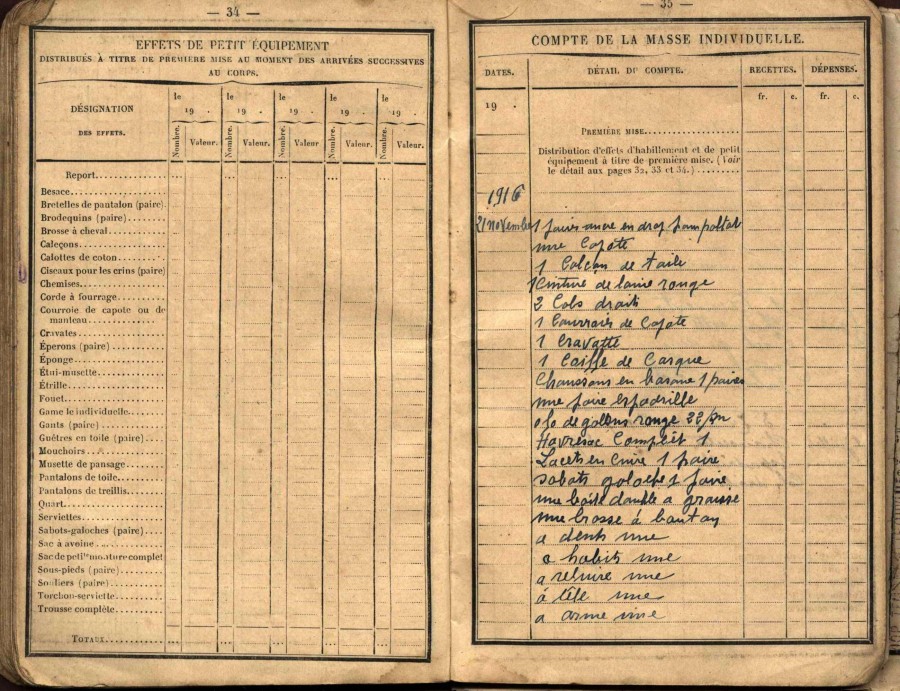 — 34 —
EFFETS DE PETIT ÉQUIPEMENT
DISTRIBUÉS À TITRE DE PREMIÈRE MISE AU MOMENT DES ARRIVÉES SUCCESSIVES
AU CORPS.
DÉSIGNATION
DES EFFETS.
le le le le le
19 . 19 . 19 . 19 . 19 .
Nombre. Valeur. Nombre. Valeur. Nombre. Valeur. Nombre. Valeur. Nombre. Valeur.
Report
Besace
Bretelles de pantalon (paire)
Brodequins (paire)
Brosse à cheval
Caleçons
Calottes de coton
Ciseaux pour les crins (paire)
Chemises
Corde à fourrage
Courroie de capote ou de
manteau
Cravates
Éperons (paire)
Éponge
Étui-musette
Étrille
Fouet
Gamelle individuelle
Gants (paire)
Guêtres en toile (paire)
Mouchoirs
Musette de pansage
Pantalons de toile
Pantalons de treillis
Quart
Serviettes
Sabots-galoches (paire)
Sac à avoine
Sac de petite monture complet
Sous-pieds (paire)
Souliers (paire)
Torchon-serviette
Trousse complète
TOTAUX
— 35 —
COMPTE DE LA MASSE INDIVIDUELLE.
DATES. DÉTAIL DU COMPTE. RECETTES. DÉPENSES.
fr. c. fr. c.
19 .
PREMIÈRE MISE
Distribution d'effets d'habillement et de petit
équipement à titre de première mise. (Voir
le détail aux pages 32, 33 et 34.)
1916
21 novembre 1 en drap
une Capote
1 Calcon de toile
1 Cinture de laine rouge
2 Cols droits
1 Courroies de Capote
1 Cravatte
1 Coiffe de Casque
Chaussons en basane 1 paires
une paire espadrille
0,50 de galons rouge 22/m
Havresac Complêt 1
Lacets en cuire 1 paire
sabots galoche 1 paire
une boite double a graisse
une brosse á bouton
a dents une
a habits une
a reluire une
á tête une
a arme une